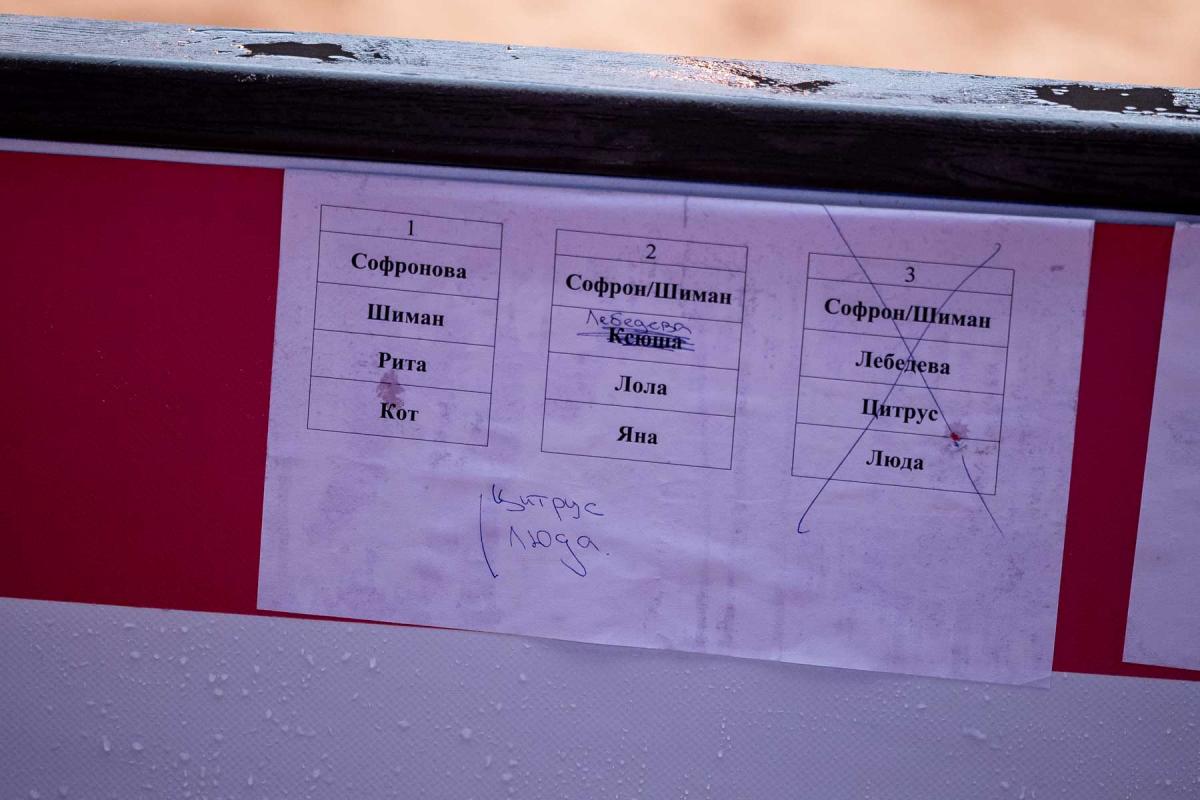 1
Софронова
Шиман
Рита
Кот
2
Софрон/Шиман
Лебедева
Ксюша
Лола
Яна
3
Софрон/Шиман
Лебедева
Цитрус
Люда
Цитрус
Люда.